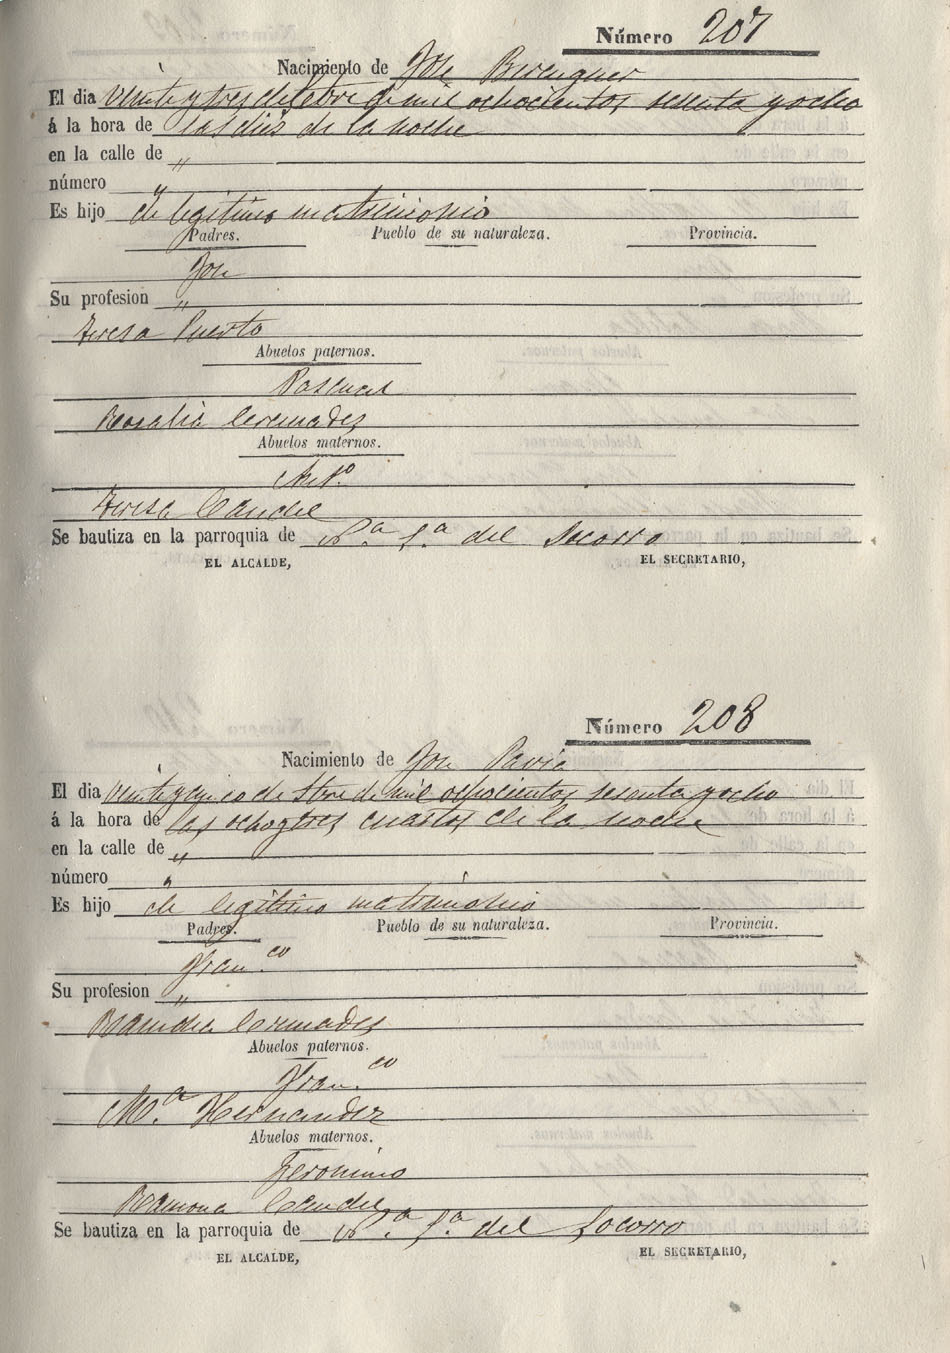 Número 207
Nacimiento de José Berenguer
El dia veinte y tres de 8bre de mil ochocientos sesenta y ocho
á la hora de las diez de la noche
en la calle de "
número "
Es hijo de legitimo matrimonio
Padres. Pueblo de su naturaleza. Provincia.
José
Su profesion "
Teresa Puerto
Abuelos paternos.
Pascual
Rosalia Cremades
Abuelos maternos.
Antº
Teresa Candel
Se bautiza en la parroquia de N.ª S.ª del Socorro
EL ALCALDE, EL SECRETARIO,
Número 208
Nacimiento de José Pavia
El dia veinte y cinco de 8bre de mil ochocientos sesenta y ocho
á la hora de las ocho y tres cuartos de la noche
en la calle de "
número "
Es hijo de legitimo matrimonio
Padres. Pueblo de su naturaleza. Provincia.
Fran.co
Su profesion "
Cremades
Abuelos paternos.
Fran.co
M.ª Hernandez
Abuelos maternos.
Geronimo
Ramona Candel
Se bautiza en la parroquia de N.ª S.ª del Socorro
EL ALCALDE, EL SECRETARIO,